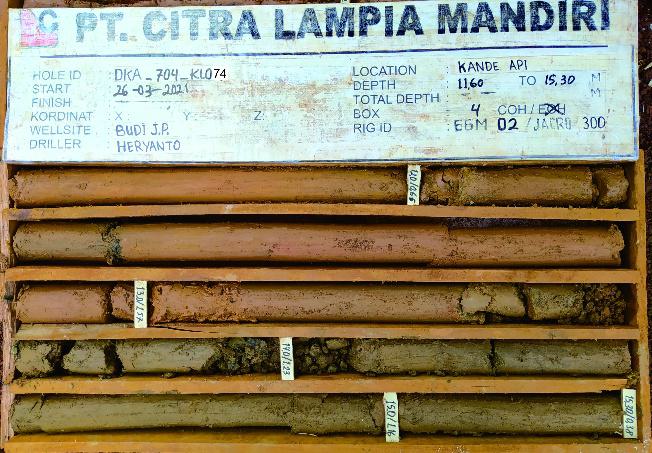 PT. CITRA LAMPIA MANDIRI
HOLE ID : DKA_704_KL074
START : 26-03-2021
FINISH :
KORDINAT X: Y: Z:
WELLSITE : BUDI J.P.
DRILLER : HERYANTO
LOCATION : KANDE API
DEPTH : 11,60 TO 15,30 M
TOTAL DEPTH : M
BOX : 4 COH / EOH
RIG ID : EGM 02 / JACRO 300
13.0/1.57
14.0/1.23
15.0/1.16
15.30/0.38